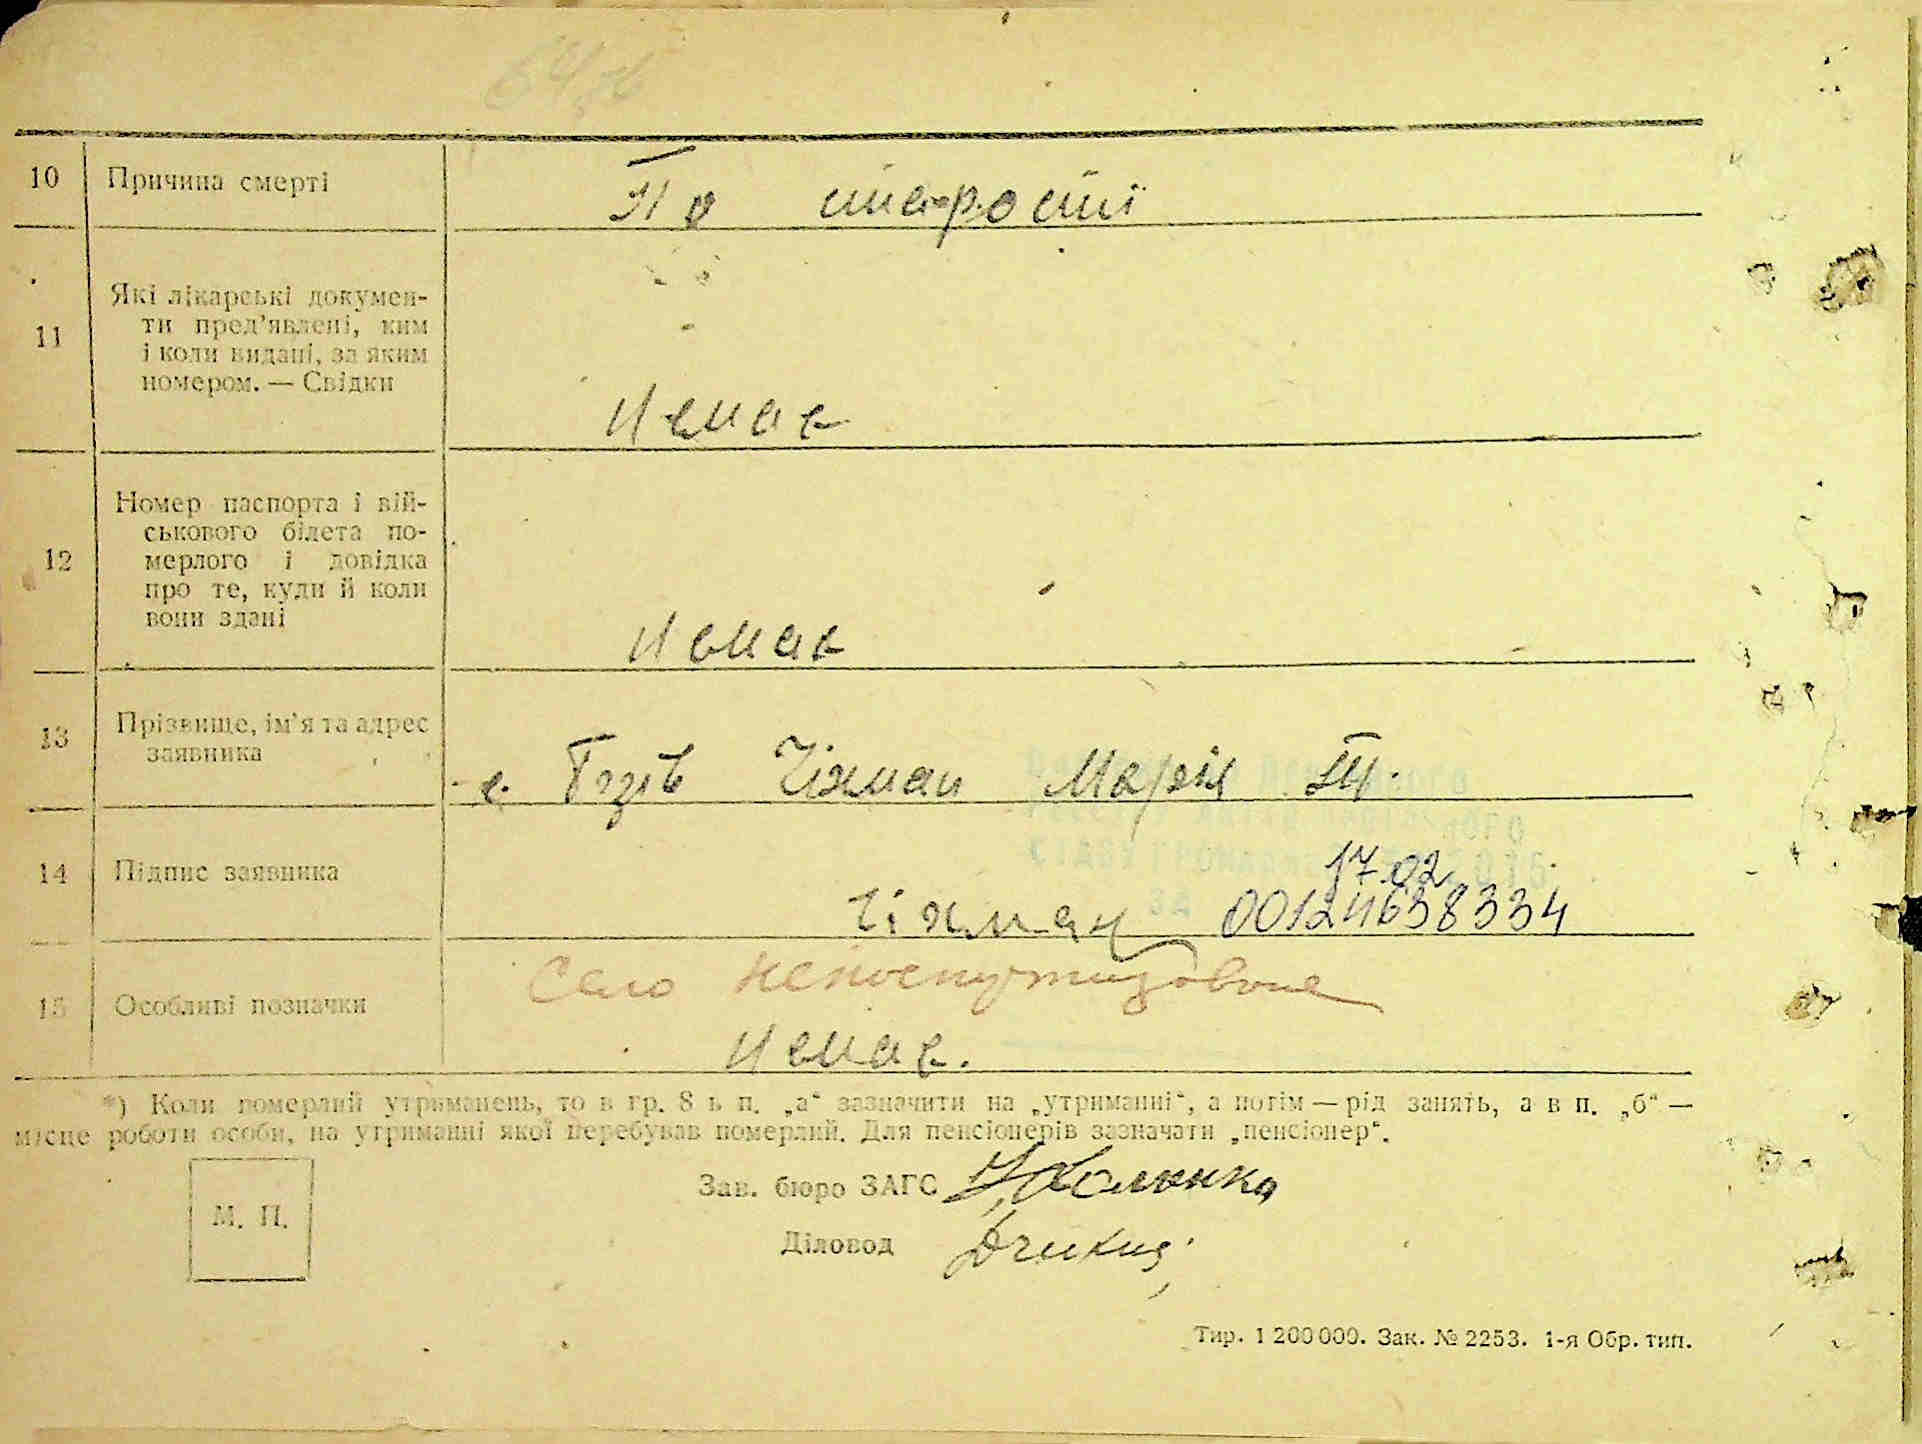 10 Причина смерті По старості
11 Які лікарські докумен-
ти пред'явлені, ким
і коли видані, за яким
номером. — Свідки
Немає
12 Номер паспорта і вій-
ськового білета по-
мерлого і довідка
про те, куди й коли
вони здані
Немає
13 Прізвище, ім'я та адрес
заявника
с. Чіхман Марія
17.02
14 Підпис заявника Чіхман 00124638334
Село
15 Особливі позначки
Немає.
*) Коли померлий утриманець, то в гр. 8 в п. „а“ зазначити на „утриманні“, а потім — рід занять, а в п. „б“ —
місце роботи особи, на утриманні якої перебував померлий. Для пенсіонерів зазначати „пенсіонер“.
Зав. бюро ЗАГС
М. П.
Діловод
Тир. 1 200 000. Зак. № 2253. 1-я Обр. тип.